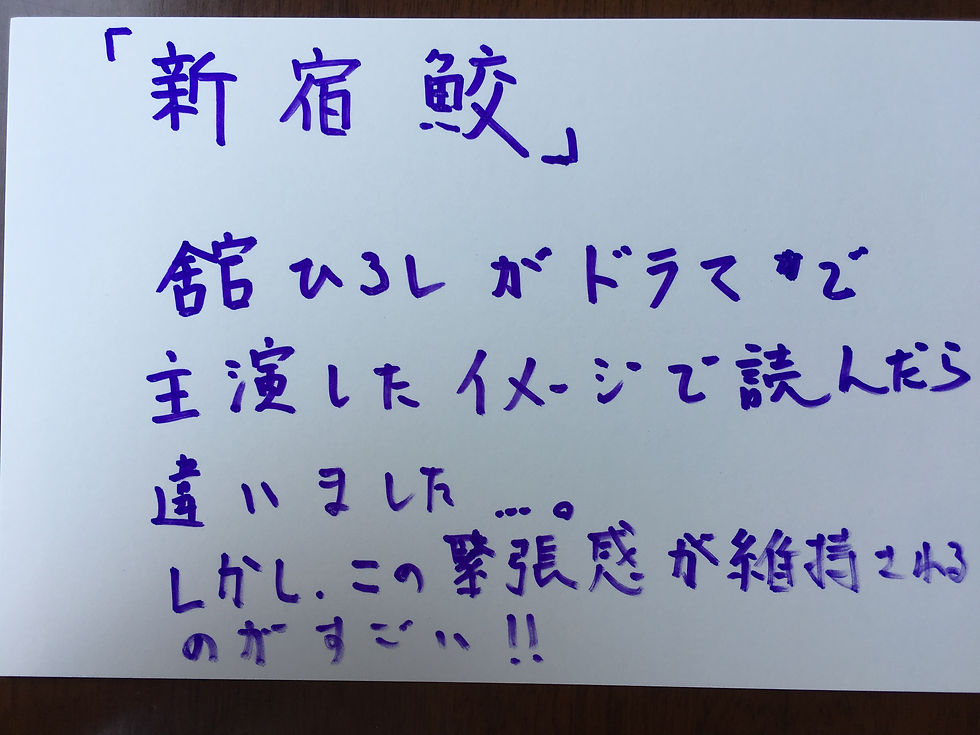 「新宿鮫」
舘ひろしがドラマで
主演したイメージで読んだら
違いました…。
しかし、この緊張感が維持される
のがすごい!!